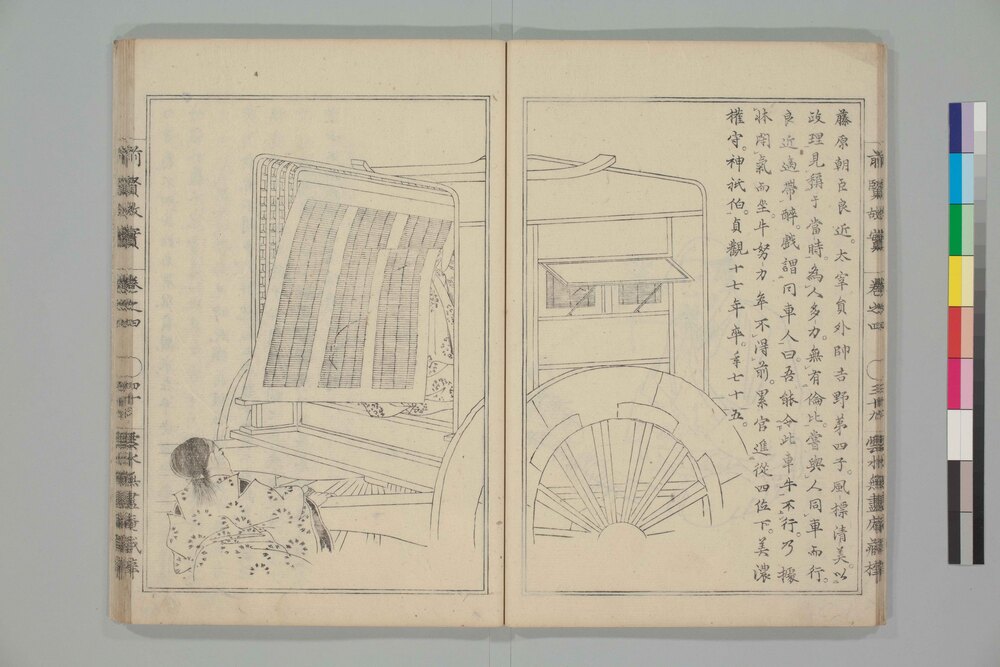 藤原朝臣良近。太宰員外帥吉野第四子。風標清美。以
政理見稱于當時。為人多力。無有倫比。嘗與人同車而行。
良近適帶醉。戲謂同車人曰。吾能令此車牛不行。乃據
牀閉氣而坐。牛努力卒不得前。累官進從四位下。美濃
權守。神祇伯。貞觀十七年卒。年七十五。
前賢故實
卷之四
三十九
前賢故實
卷之四
四十